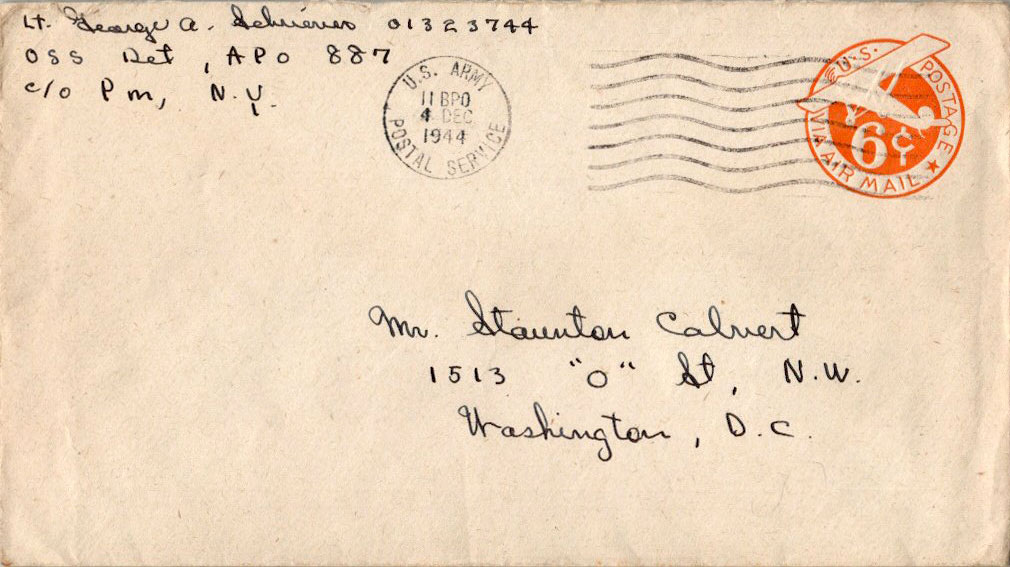 Lt. George A. Schriever 01323744
OSS Det, APO 887
c/o Pm, N.Y.
U.S. ARMY
11 BPO
4 DEC
1944
POSTAL SERVICE
U.S. POSTAGE
6¢
VIA AIR MAIL
Mr. Staunton Calvert
1513 "O" St, N.W.
Washington, D.C.